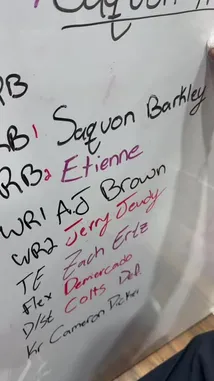 Saquon
RB
RB1 Saquon Barkley
RB2 Etienne
WR1 AJ Brown
WR2 Jerry Jeudy
TE Zach Ertz
Flex Demercado
D/st Colts Def.
Kr Cameron Dicker